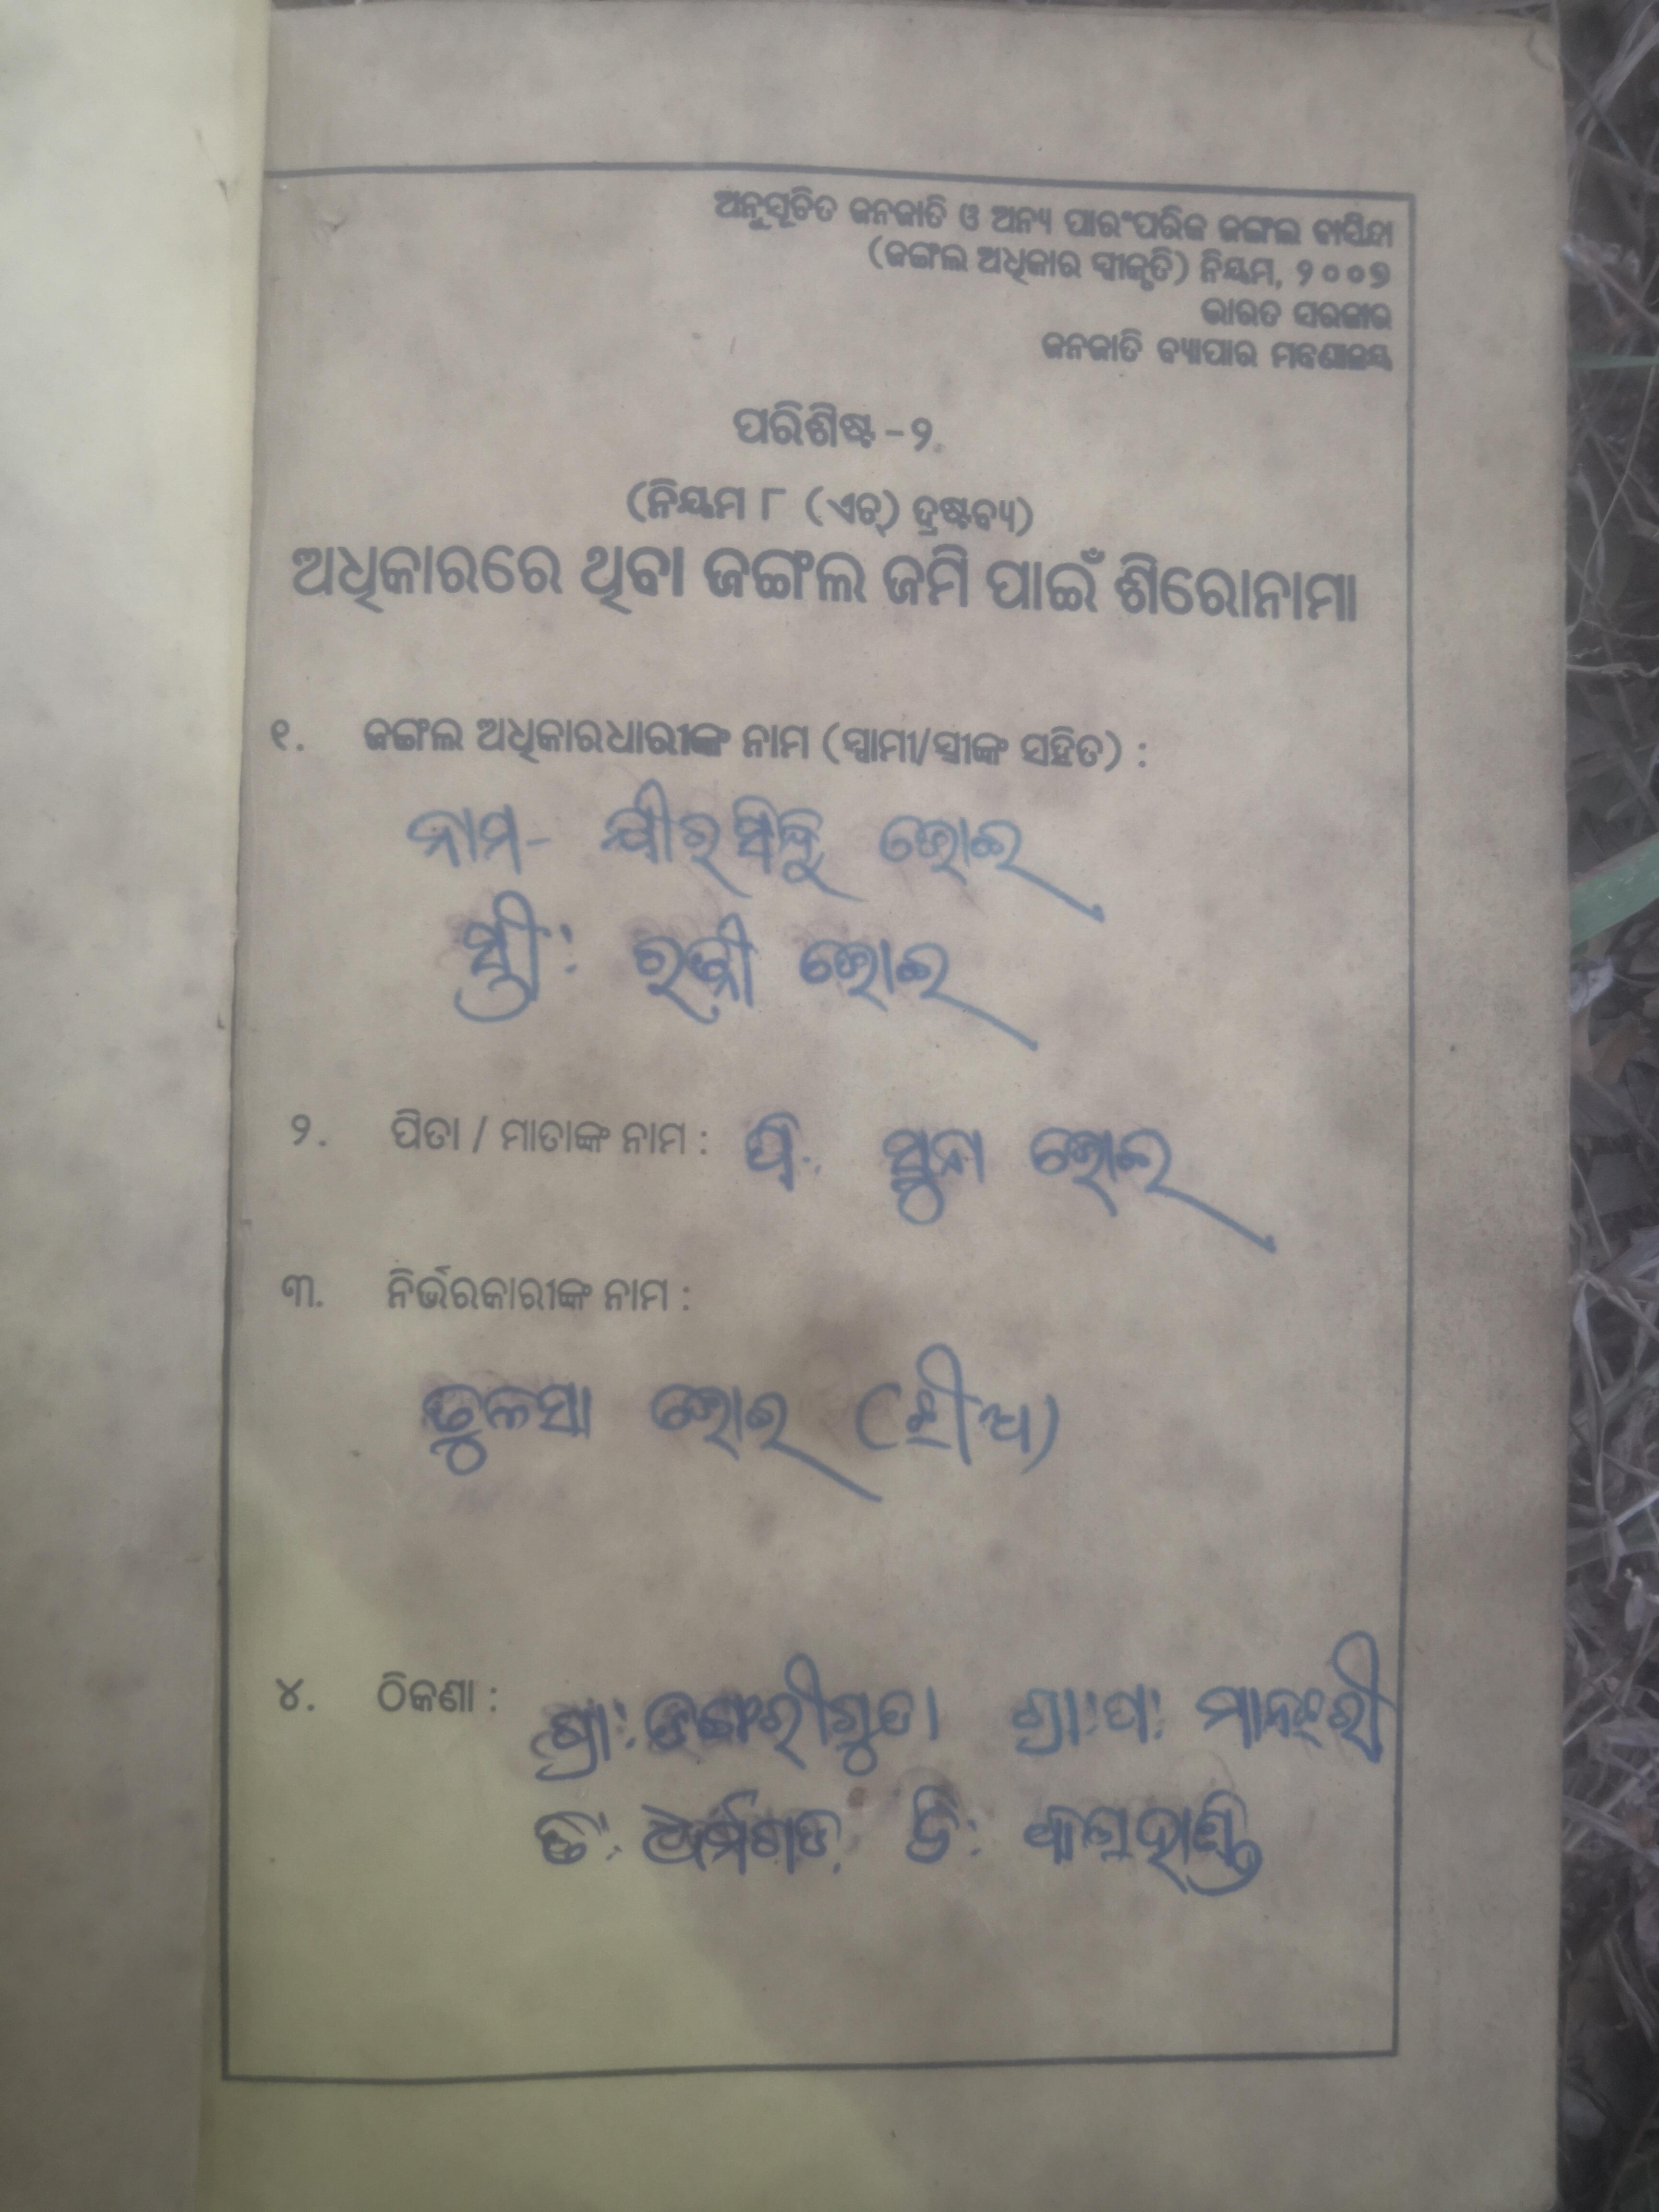 ଅନୁସୂଚିତ ଜନଜାତି ଓ ଅନ୍ୟ ପାରଂପରିକ ଜଙ୍ଗଲ ବାସିନ୍ଦା
(ଜଙ୍ଗଲ ଅଧିକାର ସ୍ୱୀକୃତି) ନିୟମ, ୨୦୦୭
ଭାରତ ସରକାର
ଜନଜାତି ବ୍ୟାପାର ମନ୍ତ୍ରଣାଳୟ
ପରିଶିଷ୍ଟ - ୨
(ନିୟମ ୮ (ଏଚ୍) ଦ୍ରଷ୍ଟବ୍ୟ)
ଅଧିକାରରେ ଥିବା ଜଙ୍ଗଲ ଜମି ପାଇଁ ଶିରୋନାମା
୧. ଜଙ୍ଗଲ ଅଧିକାରଧାରୀଙ୍କ ନାମ (ସ୍ୱାମୀ/ସ୍ତ୍ରୀଙ୍କ ସହିତ) :
ନାମ- କ୍ଷୀରସିନ୍ଧୁ ଭୋଇ
ସ୍ତ୍ରୀ: ରତ୍ନୀ ଭୋଇ
୨. ପିତା / ମାତାଙ୍କ ନାମ : ପି: ସୁନା ଭୋଇ
୩. ନିର୍ଭରକାରୀଙ୍କ ନାମ :
ତୁଳସା ଭୋଇ (ଝୀଅ)
୪. ଠିକଣା : ଗ୍ରା: ଡଙ୍ଗରୀଗୁଡା ଗ୍ରା:ପ:
ତ: ଧର୍ମଗଡ ଜି: କଳାହାଣ୍ଡି